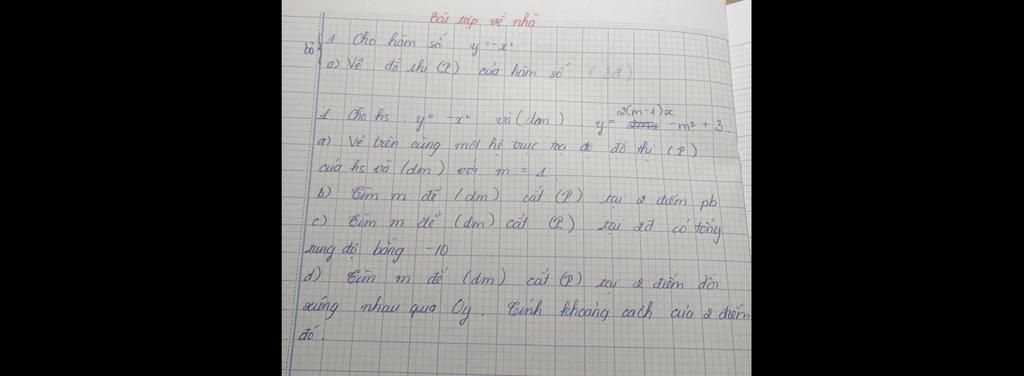 Bài tập về nhà
bỏ
1 Cho hàm số y = -x²
a) Vẽ đồ thị (P) của hàm số
1 Cho hs y = -x² và (dm) . y = 2(m-1)x -m² + 3.
a) Vẽ trên cùng một hệ trục toạ độ đồ thị (P)
của hs và (dm) với m = 1
b) Tìm m để (dm) cắt (P) tại 2 điểm pb
c) Tìm m để (dm) cắt (P) tại 2đ có tổng
tung độ bằng -10
d) Tìm m để (dm) cắt (P) tại 2 điểm đối
xứng nhau qua Oy. Tính khoảng cách của 2 điểm
đó.